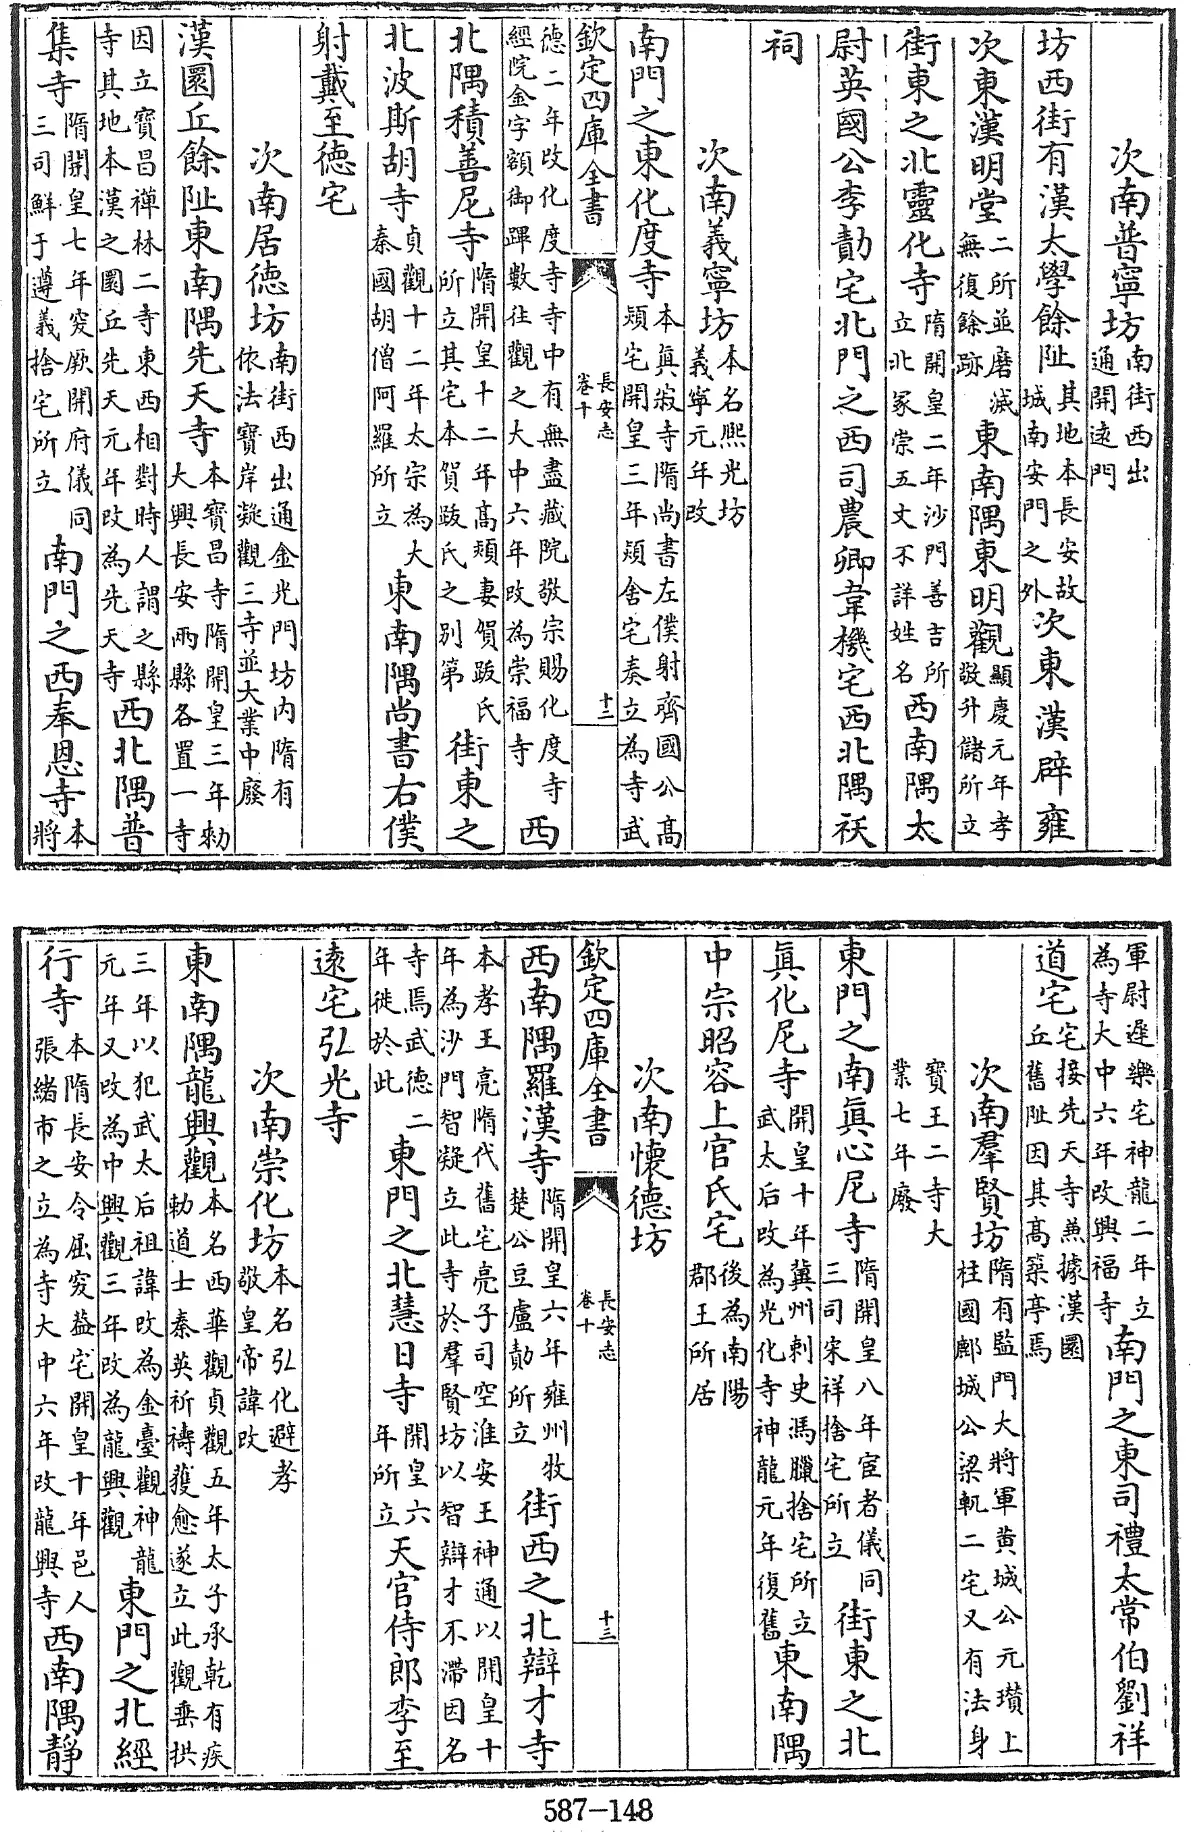 次南普寧坊南街西出通開遠門
坊西街有漢太學餘阯其地本長安故城南安門之外次東漢辟雍
次東漢明堂二所並磨滅無復餘跡東南隅東明觀顯慶元年孝敬升儲所立
街東之北靈化寺隋開皇二年沙門善吉所立北冢崇五丈不詳姓名西南隅太
尉英國公李勣宅北門之西司農卿韋機宅西北隅祅
祠
次南義寧坊本名熙光坊義寧元年改
南門之東化度寺本眞寂寺隋尚書左僕射齊國公高熲宅開皇三年熲舍宅奏立為寺武
欽定四庫全書
長安志
卷十
十二
德二年改化度寺寺中有無盡藏院敬宗賜化度寺經院金字額御蹕數往觀之大中六年改為崇福寺西
北隅積善尼寺隋開皇十二年高熲妻賀跋氏所立其宅本賀跋氏之別第街東之
北波斯胡寺貞觀十二年太宗為大秦國胡僧阿羅所立東南隅尚書右僕
射戴至德宅
次南居德坊南街西出通金光門坊內隋有依法寶岸凝觀三寺並大業中廢
漢圜丘餘阯東南隅先天寺本寶昌寺隋開皇三年勑大興長安兩縣各置一寺
因立寶昌禪林二寺東西相對時人謂之縣寺其地本漢之圜丘先天元年改為先天寺西北隅普
集寺隋開皇七年突厥開府儀同三司鮮于遵義捨宅所立南門之西奉恩寺本將
軍尉遲樂宅神龍二年立為寺大中六年改興福寺南門之東司禮太常伯劉祥
道宅宅接先天寺兼據漢圜丘舊阯因其高築亭焉
次南羣賢坊隋有監門大將軍黃城公元瓚上柱國郕城公梁軌二宅又有法身
寶王二寺大業七年廢
東門之南眞心尼寺隋開皇八年宦者儀同三司宋祥捨宅所立街東之北
眞化尼寺開皇十年冀州刺史馮臘捨宅所立武太后改為光化寺神龍元年復舊東南隅
中宗昭容上官氏宅後為南陽郡王所居
次南懷德坊
欽定四庫全書
長安志
卷十
十三
西南隅羅漢寺隋開皇六年雍州牧楚公豆盧勣所立街西之北辯才寺
本孝王亮隋代舊宅亮子司空淮安王神通以開皇十年為沙門智凝立此寺於羣賢坊以智辯才不滯因名
寺焉武德二年徙於此東門之北慧日寺開皇六年所立天官侍郎李至
遠宅弘光寺
次南崇化坊本名弘化避孝敬皇帝諱改
東南隅龍興觀本名西華觀貞觀五年太子承乾有疾勅道士秦英祈禱獲愈遂立此觀垂拱
三年以犯武太后祖諱改為金臺觀神龍元年又改為中興觀三年改為龍興觀東門之北經
行寺本隋長安令屈突蓋宅開皇十年邑人張緒市之立為寺大中六年改龍興寺西南隅靜
587-148